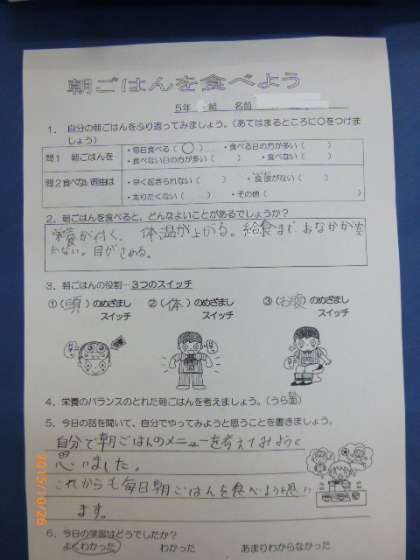 朝ごはんを食べよう
5年 組 名前
1. 自分の朝ごはんをふり返ってみましょう。(あてはまるところに○をつけま
しょう)
問1 朝ごはんを
・毎日食べる(○) ・食べる日の方が多い( )
・食べない日の方が多い( ) ・食べない( )
問2食べない理由は
・早く起きられない( ) ・食欲がない( )
・太りたくない( ) ・その他( )
2. 朝ごはんを食べると、どんなよいことがあるでしょうか?
栄養が付く、体温が上がる。給食まで、おなかが空
かない。目がさめる。
3. 朝ごはんの役割…3つのスイッチ
①(頭)のめざまし ②(体)のめざまし ③(お腹)のめざまし
スイッチ スイッチ スイッチ
4. 栄養のバランスのとれた朝ごはんを考えましょう。(うら面)
5. 今日の話を聞いて、自分でやってみようと思うことを書きましょう。
自分で朝ごはんのメニューを考えてみようと
思いました。
これからも毎日朝ごはんを食べようと思い
ます。
6. 今日の学習はどうでしたか?
よくわかった わかった あまりわからなかった
2015/10/26